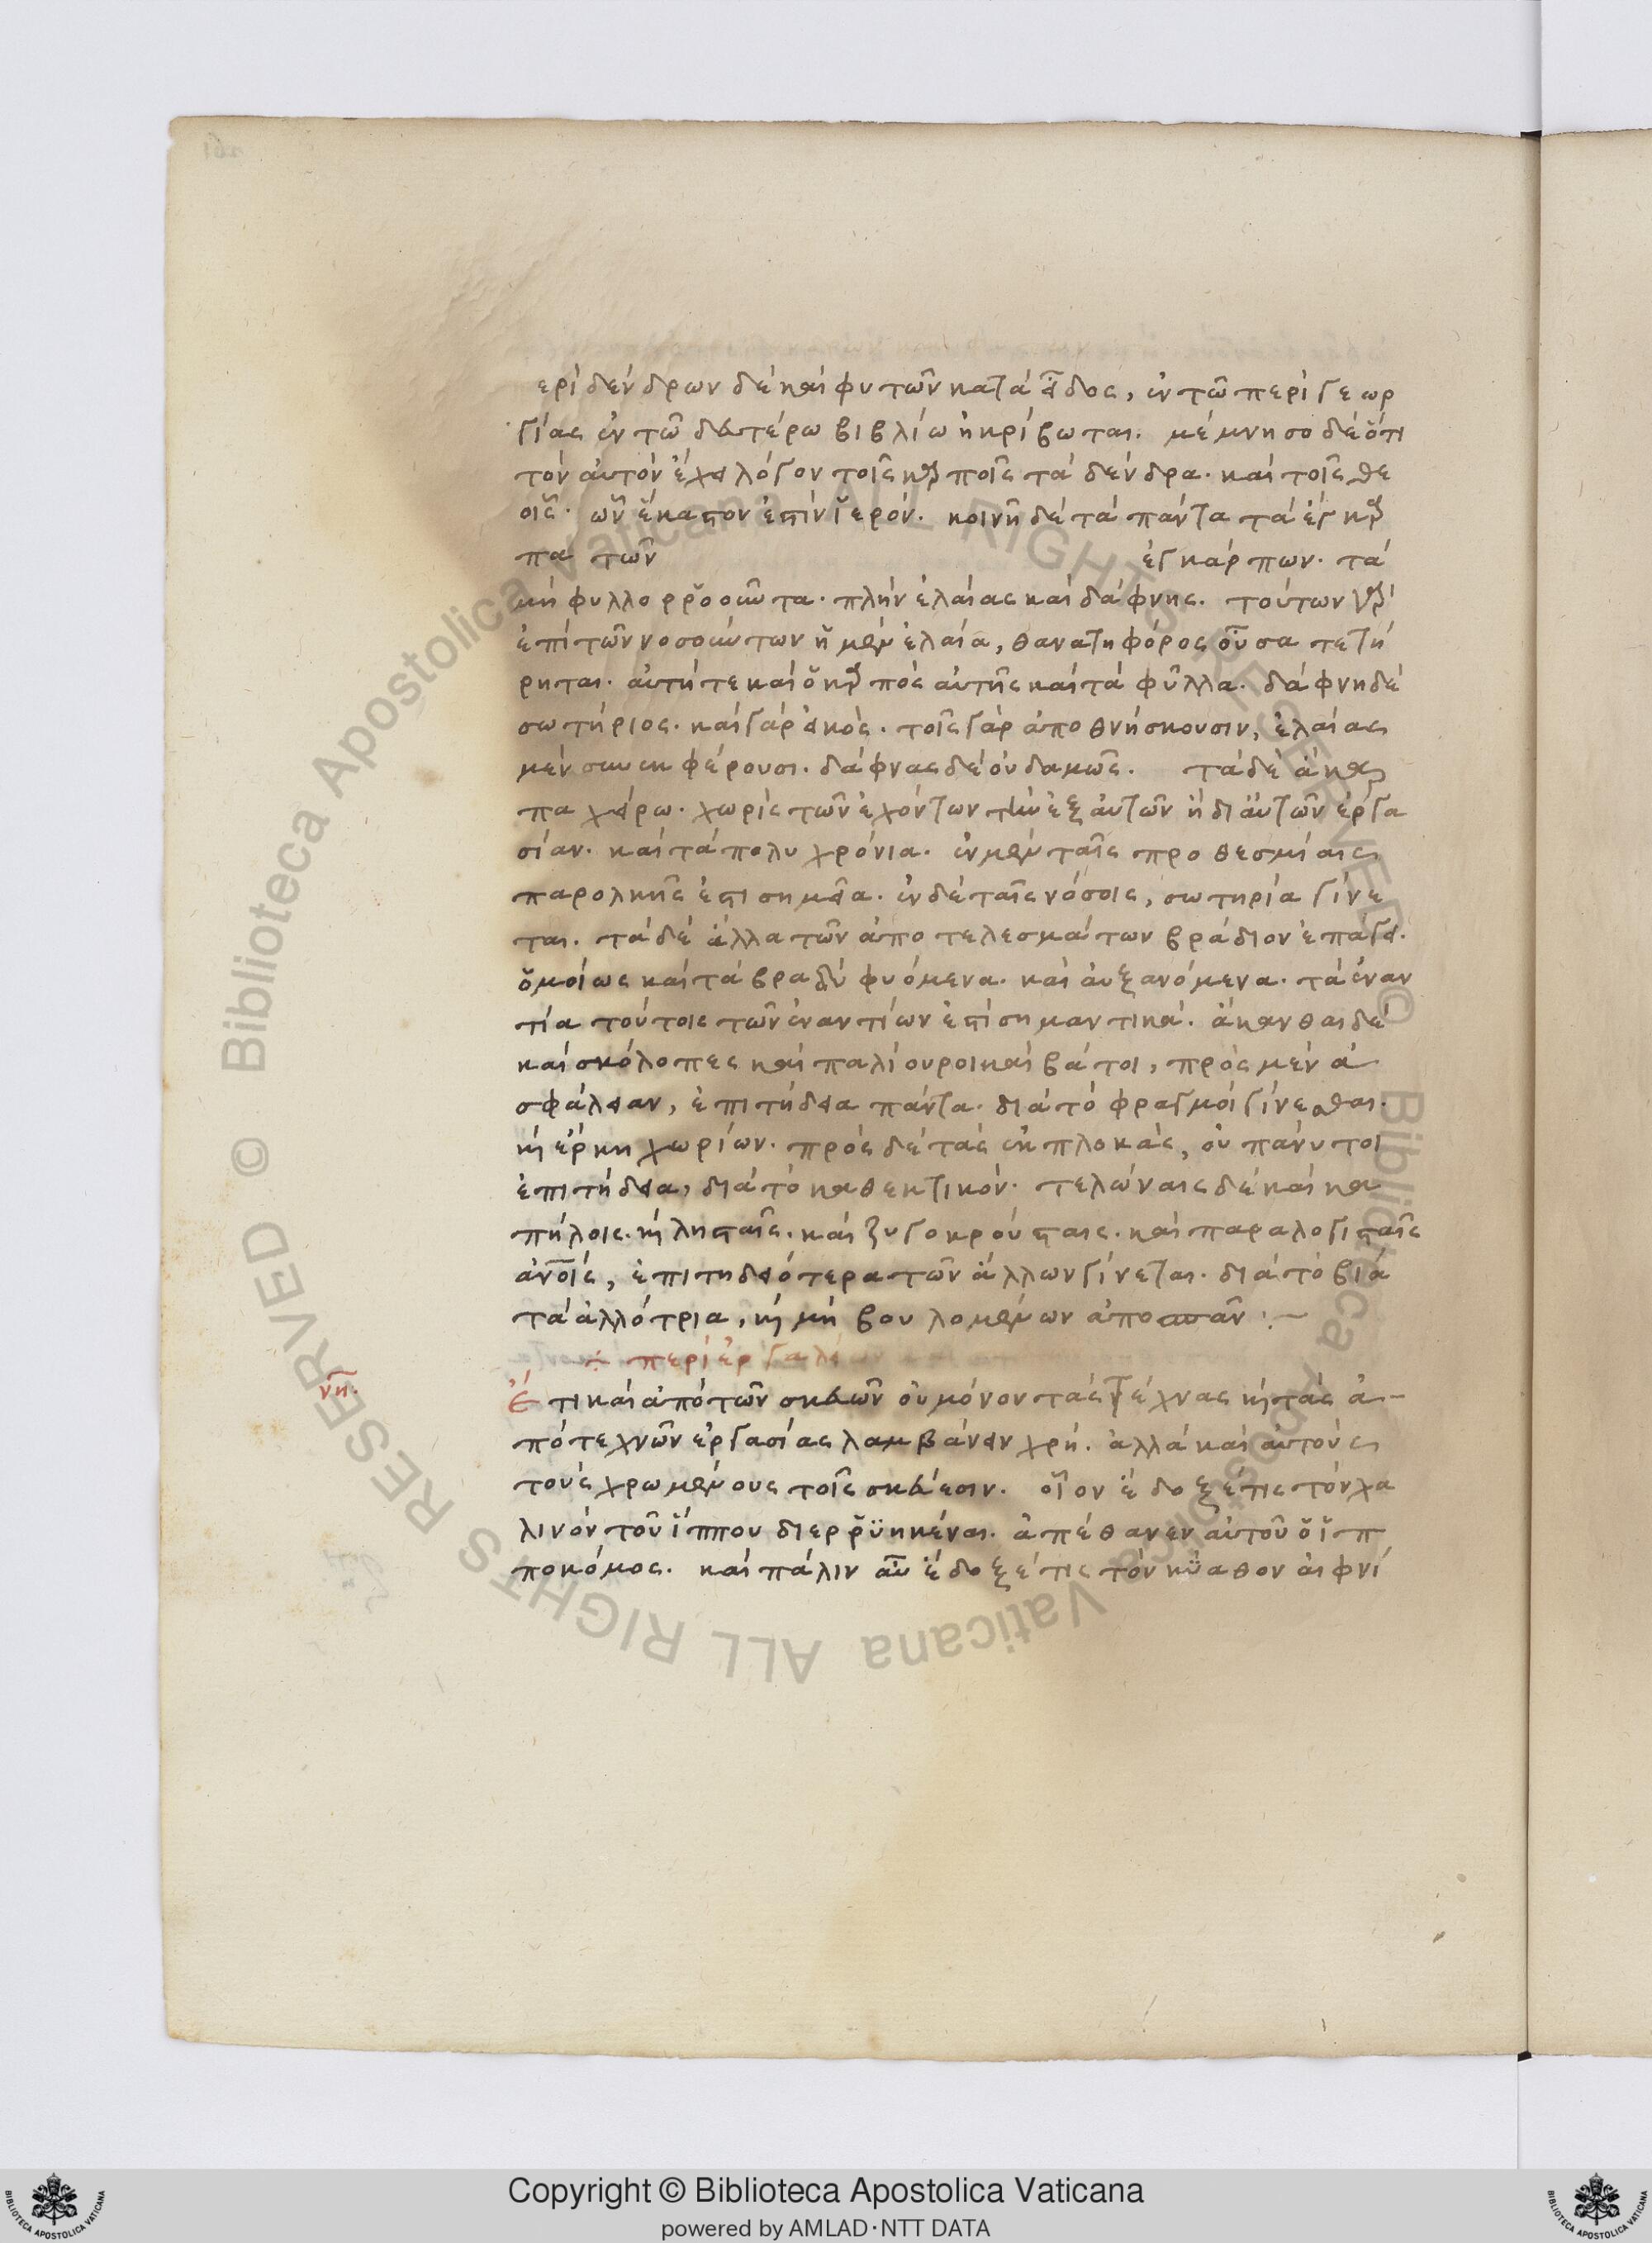 ερὶ δένδρων δὲ καὶ φυτῶν κατὰ εἶδος, ἐν τῶ περὶ γεωρ
γίας ἐν τῶ δευτέρω βιβλίω ἠκρίβωται. μέμνησο δὲ ὅτι
τὸν αὐτὸν ἔχει λόγον τοῖς καρποῖς τὰ δένδρα. καὶ τοῖς θε
οῖς. ὧν ἕκαστον ἐστὶν ἱερόν. κοινῆ δὲ τὰ πάντα τὰ ἔγκαρ
πα τῶν ἐγκάρπων. τὰ
μὴ φυλλορροοῦντα. πλὴν ἐλαίας καὶ δάφνης. τούτων γὰρ
ἐπὶ τῶν νοσούντων ἡ μὲν ἐλαία, θανατηφόρος οὖσα τετή
ρηται. αὐτή τε καὶ ὁ καρπὸς αὐτῆς καὶ τὰ φύλλα. δάφνη δὲ
σωτήριος. καὶ γὰρ εἰκός. τοῖς γὰρ ἀποθνήσκουσιν, ἐλαίας
μὲν συνεκφέρουσι. δάφνας δὲ οὐδαμῶς. τὰ δὲ ἄκαρ
πα χείρω. χωρὶς τῶν ἐχόντων τὴν ἐξ αὐτῶν ἢ δι αὐτῶν ἐργα
σίαν. καὶ τὰ πολυχρόνια. ἐν μὲν ταῖς προθεσμίαις
παρολκῆς ἐστι σημεῖα. ἐν δὲ ταῖς νόσοις, σωτηρία γίνε
ται. τὰ δὲ ἄλλα τῶν ἀποτελεσμάτων βράδιον ἐπάγει.
ὁμοίως καὶ τὰ βραδὺ φυόμενα. καὶ αὐξανόμενα. τὰ ἐναν
τία τούτοις τῶν ἐναντίων ἐστὶ σημαντικά. ἄκανθαι δὲ
καὶ σκόλοπες καὶ παλίουροι καὶ βάτοι, πρὸς μὲν ἀ
σφάλειαν, ἐπιτήδεια πάντα. διὰ τὸ φραγμοὶ γίνεσθαι.
κὴ ἕρκη χωρίων. πρὸς δὲ τὰς ἐκπλοκάς, οὐ πάνυ τοι
ἐπιτήδεια, διὰ τὸ καθεκτικόν. τελώναις δὲ καὶ κα
πήλοις. κὴ λησταῖς. καὶ ζυγοκρούσταις. καὶ παραλογισταῖς
ἀνοῖς, ἐπιτηδειότερα τῶν ἄλλων γίνεται. διὰ τὸ βίᾳ
τὰ ἀλλότρια, κὴ μὴ βουλομένων ἀποσπᾶν :~
÷ περὶ ἐργαλείων
νη. Ἔτι καὶ ἀπὸ τῶν σκευῶν οὐ μόνον τὰς τέχνας κὴ τὰς ἀ-
πὸ τεχνῶν ἐργασίας λαμβάνειν χρή. ἀλλὰ καὶ αὐτοὺς
τοὺς χρωμένους τοῖς σκεύεσιν. οἷον ἔδοξέ τις τὸν χα
λινὸν τοῦ ἵππου διερρϋηκέναι. ἀπέθανεν αὐτοῦ ὁ ἱπ
ποκόμος. καὶ πάλιν αὖ ἔδοξέ τις τὸν κύαθον αἰφνί